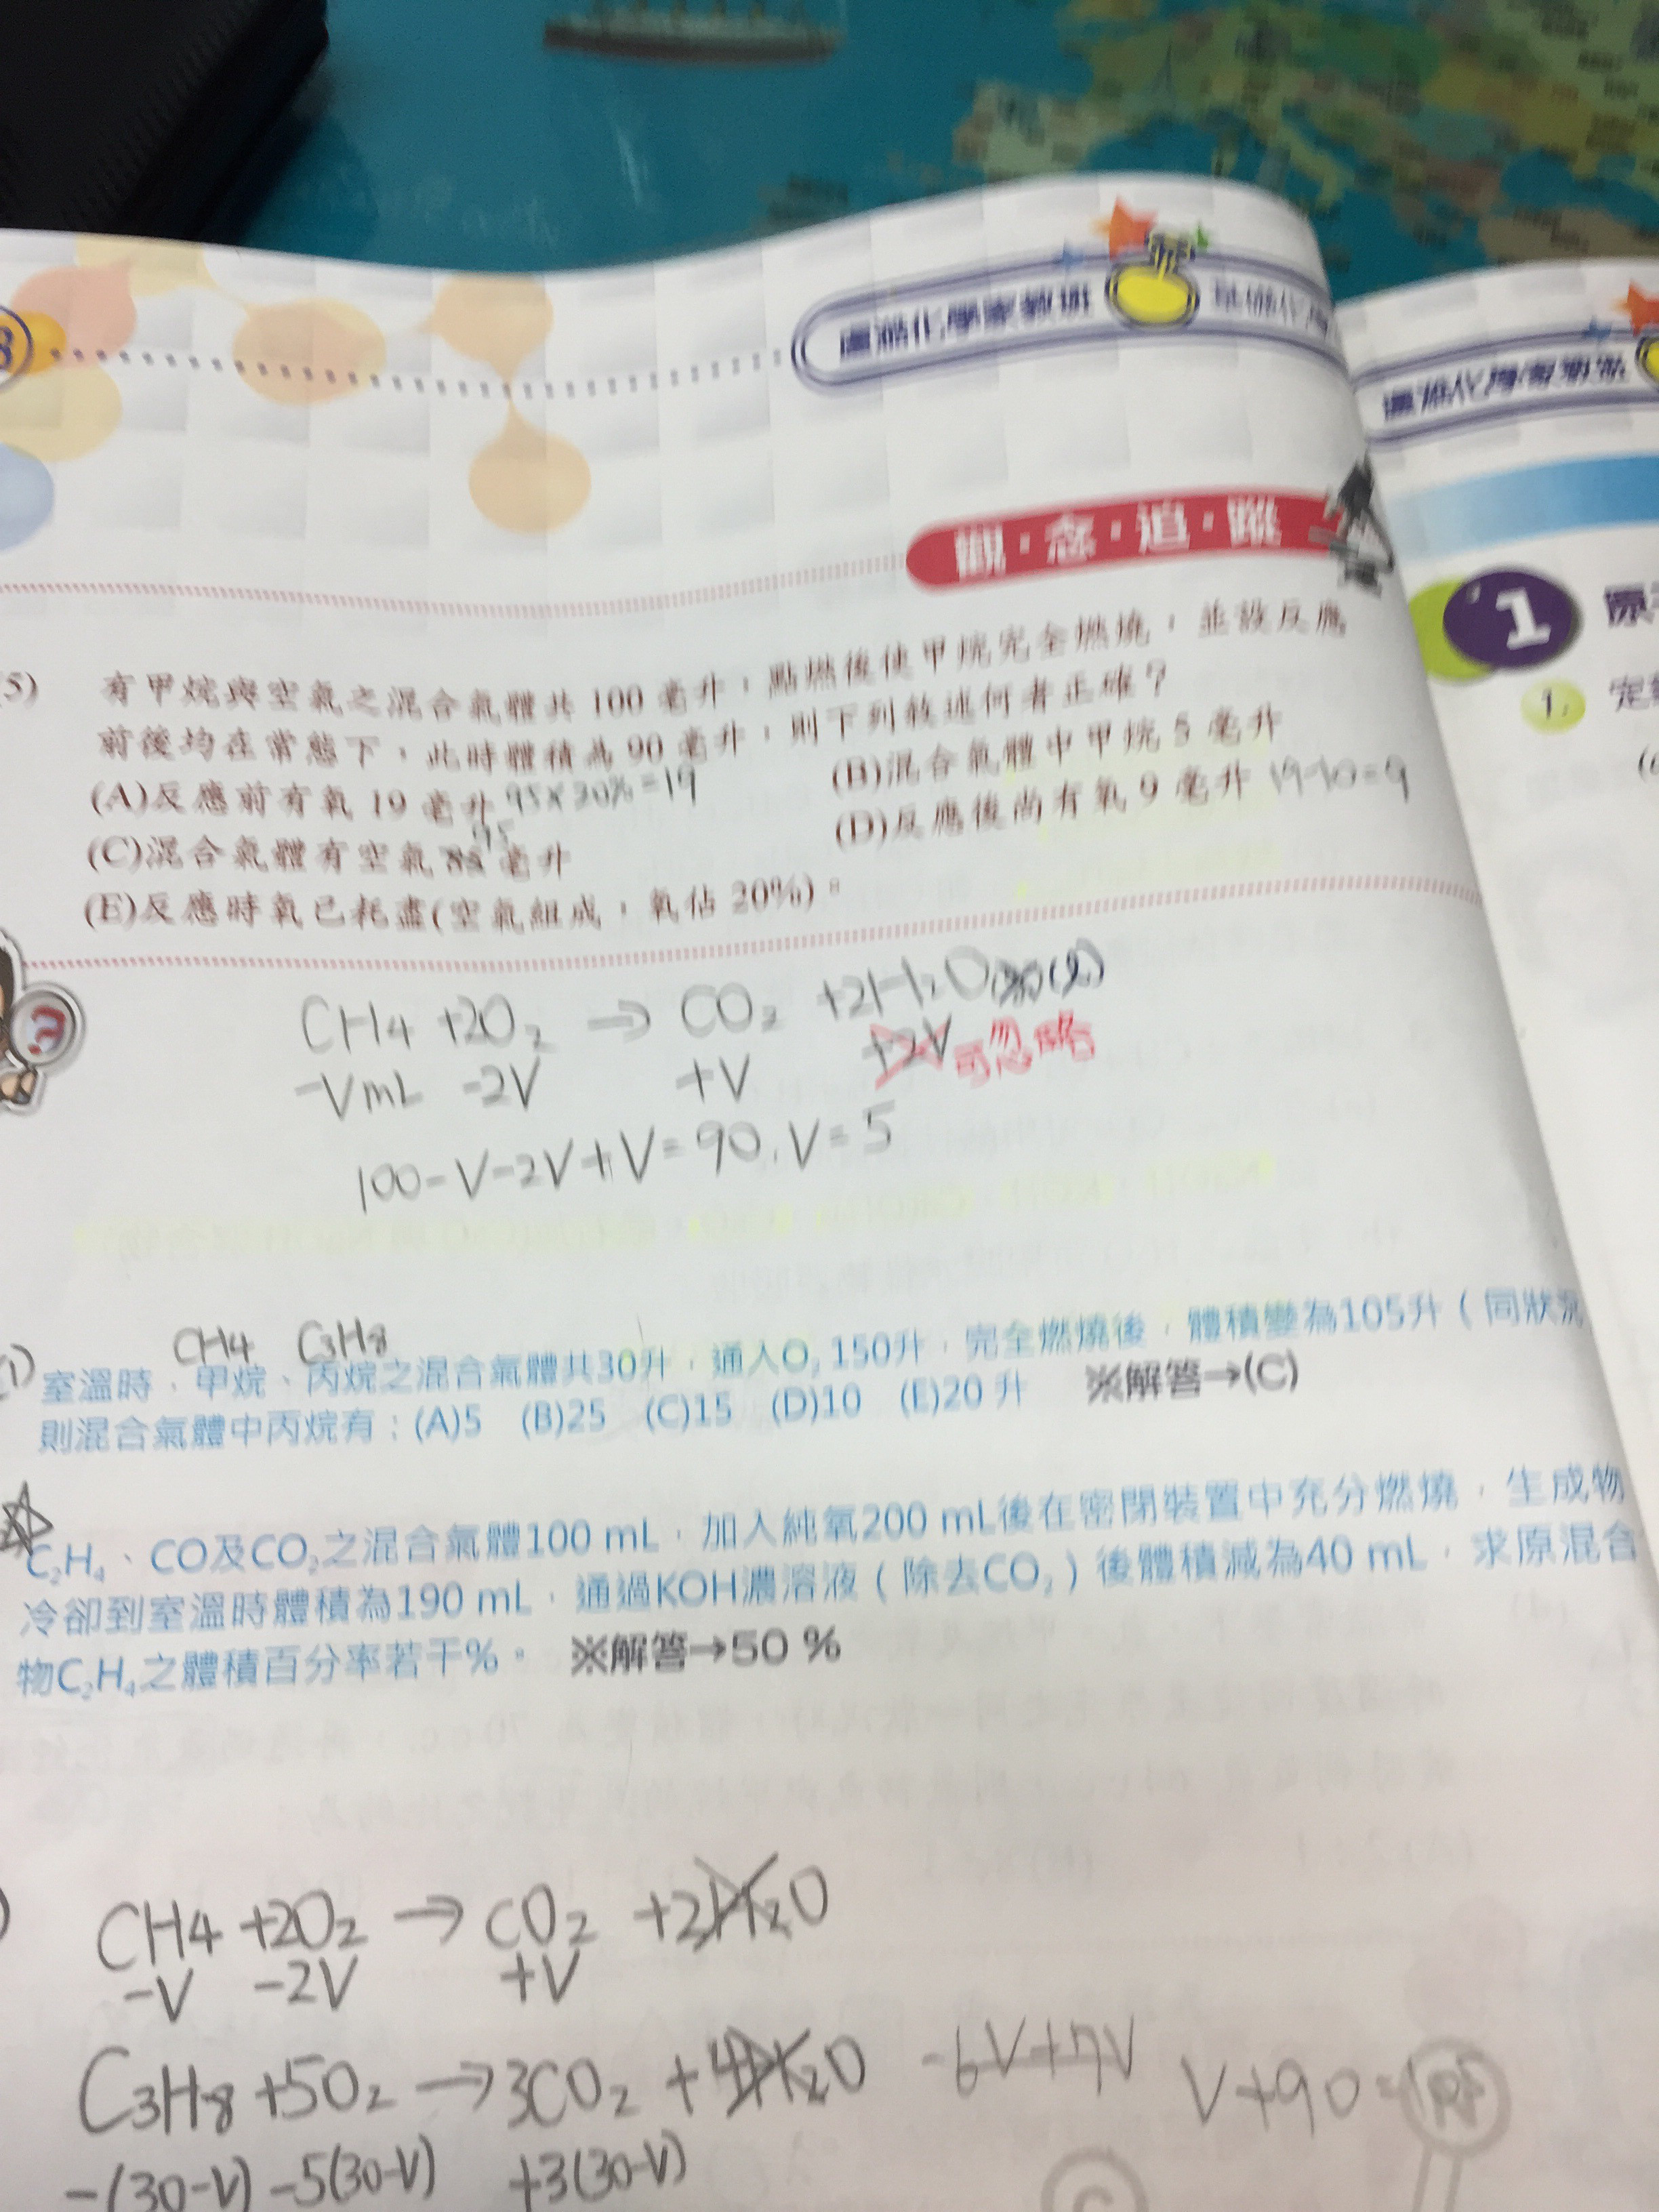 觀·念·追·蹤
1
原
1. 定
(5) 有甲烷與空氣之混合氣體共 100 毫升，點燃後使甲烷完全燃燒，並設反應
前後均在常態下，此時體積為 90 毫升，則下列敘述何者正確？
(A)反應前有氧 19 毫升 (B)混合氣體中甲烷 5 毫升
(C)混合氣體有空氣 毫升 95 (D)反應後尚有氧 9 毫升 19-10=9
(E)反應時氧已耗盡(空氣組成，氧佔 20%)。
CH4 +2O2 → CO2 +2H2O (l)
-VmL -2V +V +2V 可忽略
100-V-2V+V=90, V=5
CH4 C3H8
室溫時，甲烷、丙烷之混合氣體共30升，通入O2 150升，完全燃燒後，體積變為105升（同狀況
則混合氣體中丙烷有：(A)5 (B)25 (C)15 (D)10 (E)20 升 ※解答→(C)
C2H4、CO及CO2之混合氣體100 mL，加入純氧200 mL後在密閉裝置中充分燃燒，生成物
冷卻到室溫時體積為190 mL，通過KOH濃溶液（除去CO2）後體積減為40 mL，求原混合
物C2H4之體積百分率若干%。 ※解答→50 %
CH4 +2O2 → CO2 +2H2O
-V -2V +V
C3H8 +5O2 → 3CO2 +4H2O -6V+7V V+90=
-(30-V) -5(30-V) +3(30-V)